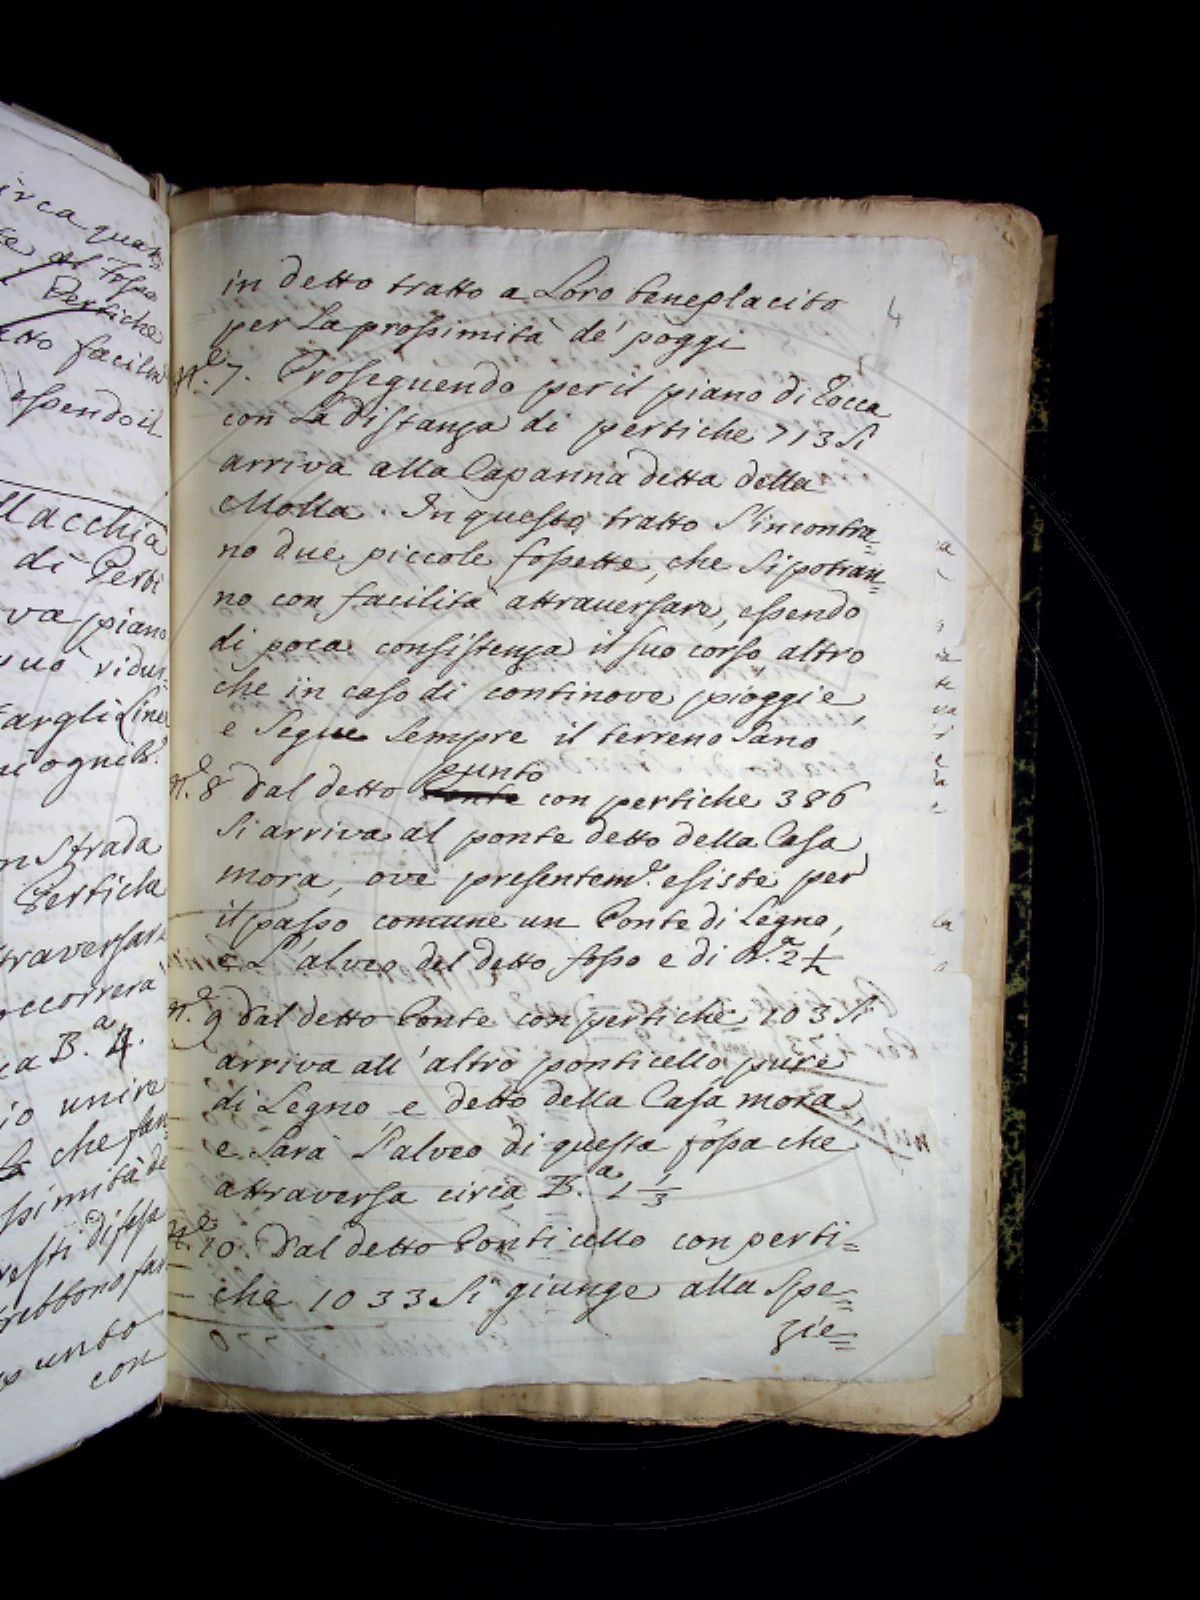 in detto tratto a Loro beneplacito
per La prossimità de' poggi
4
N.º 7. Proseguendo per il piano di Rocca
con La distanza di pertiche 713 Si
arriva alla Capanna detta della
Molla. In questo tratto S'incontra=
no due piccole fossette, che Si potran=
no con facilità attraversare, essendo
di poca consistenza il suo corso altro
che in caso di continove pioggie,
e Segue Sempre il terreno Sano
punto
N.º 8 dal detto con pertiche 386
Si arriva al ponte detto della Casa
mora, ove presentem.e esiste per
il passo comune un Ponte di Legno,
e L'alveo del detto fosso e di B.a 2 1/2
N.º 9 dal detto Ponte con pertiche 103 Si
arriva all'altro ponticello pure
di Legno, e detto della Casa mora,
e Sarà l'alveo di questa fossa che
attraversa circa B.a 1 1/3
N.º 10. dal detto Ponticello con perti=
che 1033 Si giunge alla Spe=
zie=
irca quat
al fosso
Pertiche
etto facilm
essendo il
Macchia
di Perti
va piano
può ridur=
fargli Linea
n Strada
Pertiche
traversar
occorrerà
ca B.a 4.
io unire
che fan=
ssimità de
resti difesa
rebbono far
punto
con